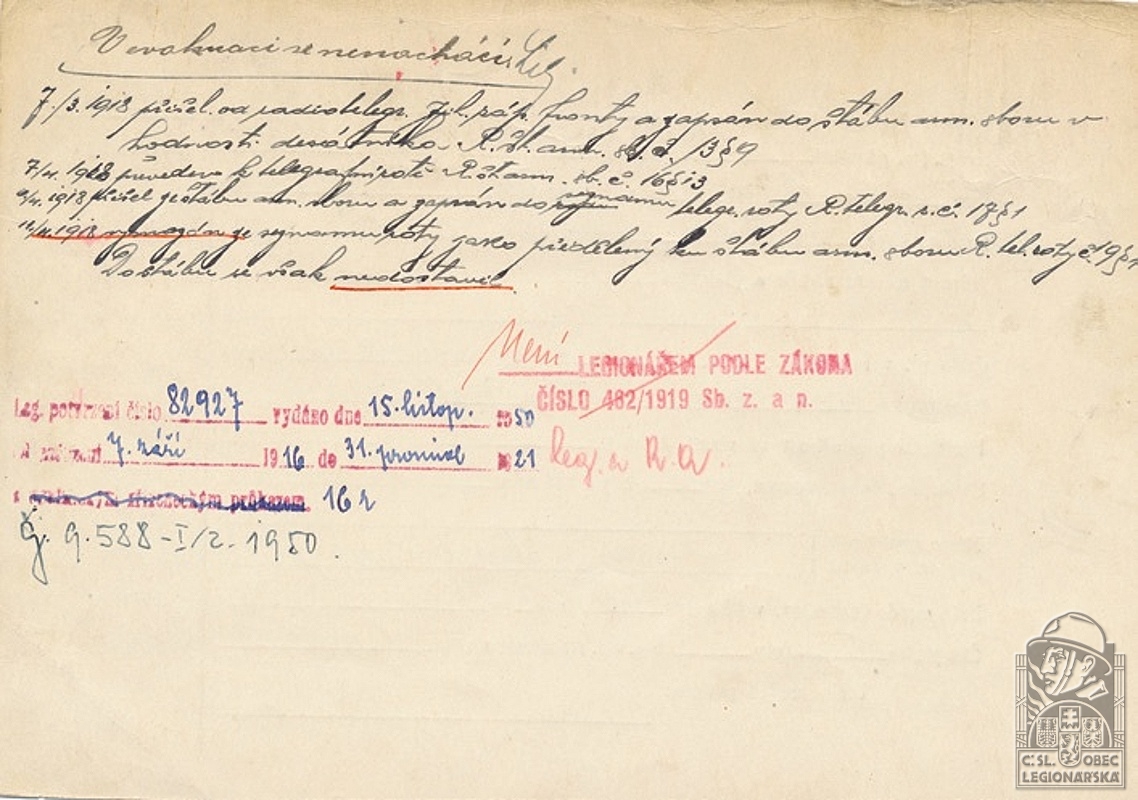 V evakuaci se nenachází.
7./3. 1918 přišel od radiotelegr. jz. fronty a zapsán do štábu arm. sboru v
hodnosti desátníka R. št. arm. sb. č. /3 § 9
7/4. 1918 převeden k telegrafní rotě R. št. arm. sb. č. 16 § 13
9/4. 1918 přišel ze štábu arm. sboru a zapsán do seznamu telegr. roty R. telegr. r. č. 17 § 1
11/4. 1918 vymazán ze seznamu roty jako přidělený ku štábu arm. sboru R. tel. roty č. 19 § 1
Do štábu se však nedostavil.
Není LEGIONÁŘEM PODLE ZÁKONA
ČÍSLO 462/1919 Sb. z. a n.
Leg. potvrzení číslo 82927 vydáno dne 15. listop. 1950
7. září 1916 do 31. prosince 1921
leg. v R. A.
16 r
Čj. 9.588-I/2-1950.
Č:SL. OBEC
LEGIONÁŘSKÁ